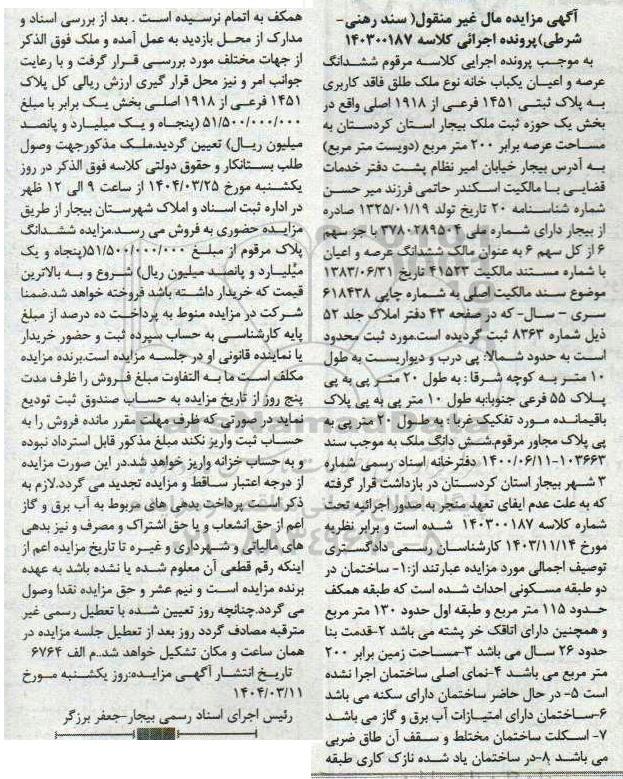 آگهی مزایده مال غیر منقول( سند رهنی-
شرطی)پرونده اجرائی کلاسه ۱۴۰۳۰۰۱۸۷
به موجب پرونده اجرایی کلاسه مرقوم ششدانگ
عرصه و اعیان یکباب خانه نوع ملک طلق فاقد کاربری
به پلاک ثبتی ۱۴۵۱ فرعی از ۱۹۱۸ اصلی واقع در
بخش یک حوزه ثبت ملک بیجار استان کردستان به
مساحت عرصه برابر ۲۰۰ متر مربع (دویست متر مربع)
به آدرس بیجار خیابان امیر نظام پشت دفتر خدمات
قضایی با مالکیت اسکندر حاتمی فرزند میر حسن
شماره شناسنامه ۲۰ تاریخ تولد ۱۳۲۵/۰۱/۱۹ صادره
از بیجار دارای شماره ملی ۳۷۸۰۲۸۹۵۰۴ با جز سهم
۶ از کل سهم ۶ به عنوان مالک ششدانگ عرصه و اعیان
با شماره مستند مالکیت ۴۱۵۲۳ تاریخ ۱۳۸۳/۰۶/۳۱
موضوع سند مالکیت اصلی به شماره چاپی ۶۱۸۴۳۸
سری - سال- که در صفحه ۴۳ دفتر املاک جلد ۵۲
ذیل شماره ۸۳۶۳ ثبت گردیده است.مورد ثبت محدود
است به حدود شمالا: پی درب و دیواریست به طول
۱۰ متر به کوچه شرقا : به طول ۲۰ متر پی به پی
پلاک ۵۵ فرعی جنوبا:به طول ۱۰ متر پی به پی پلاک
باقیمانده مورد تفکیک غربا: به طول ۲۰ متر پی به
پی پلاک مجاور مرقوم.شش دانگ ملک به موجب سند
۱۰۳۶۶۳-۱۴۰۰/۰۶/۱۱ دفترخانه اسناد رسمی شماره
۳ شهر بیجار استان کردستان در بازداشت قرار گرفته
که به علت عدم ایفای تعهد منجر به صدور اجرائیه تحت
شماره کلاسه ۱۴۰۳۰۰۱۸۷ شده است و برابر نظریه
مورخ ۱۴۰۳/۱۱/۱۴ کارشناسان رسمی دادگستری
توصیف اجمالی مورد مزایده عبارتند از:۱- ساختمان در
دو طبقه مسکونی احداث شده است که طبقه همکف
حدود ۱۱۵ متر مربع و طبقه اول حدود ۱۳۰ متر مربع
و همچنین دارای اتاقک خر پشته می باشد ۲-قدمت بنا
حدود ۲۶ سال می باشد ۳-مساحت زمین برابر ۲۰۰
متر مربع می باشد ۴-نمای اصلی ساختمان اجرا نشده
است ۵- در حال حاضر ساختمان دارای سکنه می باشد
۶-ساختمان دارای امتیازات آب برق و گاز می باشد
۷- اسکلت ساختمان مختلط و سقف آن طاق ضربی
می باشد ۸-در ساختمان یاد شده نازک کاری طبقه
همکف به اتمام نرسیده است . بعد از بررسی اسناد و
مدارک از محل بازدید به عمل آمده و ملک فوق الذکر
از جهات مختلف مورد بررسی قرار گرفت و با رعایت
جوانب امر و نیز محل قرار گیری ارزش ریالی کل پلاک
۱۴۵۱ فرعی از ۱۹۱۸ اصلی بخش یک برابر با مبلغ
۵۱/۵۰۰/۰۰۰/۰۰۰ (پنجاه و یک میلیارد و پانصد
میلیون ریال) تعیین گردید.ملک مذکورجهت وصول
طلب بستانکار و حقوق دولتی کلاسه فوق الذکر در روز
یکشنبه مورخ ۱۴۰۴/۰۳/۲۵ از ساعت ۹ الی ۱۲ ظهر
در اداره ثبت اسناد و املاک شهرستان بیجار از طریق
مزایده حضوری به فروش می رسد.مزایده ششدانگ
پلاک مرقوم از مبلغ ۵۱/۵۰۰/۰۰۰/۰۰۰(پنجاه و یک
میلیارد و پانصد میلیون ریال) شروع و به بالاترین
قیمت که خریدار داشته باشد فروخته خواهد شد.ضمنا
شرکت در مزایده منوط به پرداخت ده درصد از مبلغ
پایه کارشناسی به حساب سپرده ثبت و حضور خریدار
یا نماینده قانونی او در جلسه مزایده است.برنده مزایده
مکلف است ما به التفاوت مبلغ فروش را ظرف مدت
پنج روز از تاریخ مزایده به حساب صندوق ثبت تودیع
نماید در صورتی که ظرف مهلت مقرر مانده فروش را به
حساب ثبت واریز نکند مبلغ مذکور قابل استرداد نبوده
و به حساب خزانه واریز خواهد شد.در این صورت مزایده
از درجه اعتبار ساقط و مزایده تجدید می گردد.لازم به
ذکر است پرداخت بدهی های مربوط به آب برق و گاز
اعم از حق انشعاب و یا حق اشتراک و مصرف و نیز بدهی
های مالیاتی و شهرداری و غیره تا تاریخ مزایده اعم از
اینکه رقم قطعی آن معلوم شده یا نشده باشد به عهده
برنده مزایده است و نیم عشر و حق مزایده نقدا وصول
می گردد.چنانچه روز تعیین شده با تعطیل رسمی غیر
مترقبه مصادف گردد روز بعد از تعطیل جلسه مزایده در
همان ساعت و مکان تشکیل خواهد شد..م الف ۶۷۶۴
تاریخ انتشار آگهی مزایده:روز یکشنبه مورخ
۱۴۰۴/۰۳/۱۱
رئیس اجرای اسناد رسمی بیجار-جعفر برزگر